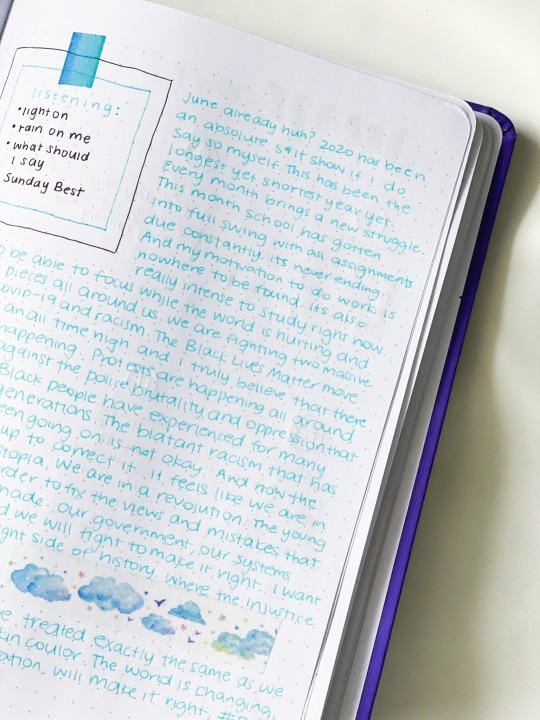 listening:
• light on
• rain on me
• what should
I say
Sunday Best
June already huh? 2020 has been
an absolute s*it show if I do
say so myself. This has been the
longest yet shortest year yet.
Every month brings a new struggle.
This month school has gotten
into full swing with all assignments
due constantly. its never ending.
And my motivation to do work is
nowhere to be found. its also
really intense to study right now.
be able to focus while the world is hurting and
pieces all around us. we are fighting two massive
ovid-19 and racism. The Black Lives Matter move
an all time high and I truly believe that there
happening. Protests are happening all around
against the police brutality and oppression that
Black people have experienced for many
generations. The blatant racism that has
een going on is not okay. And now the
up to correct it. It feels like we are in
topia, we are in a revolution. The young
rder to fix the views and mistakes that
made. Our government, our systems
d we will fight to make it right. I want
ght side of history, where the injustice
e treated exactly the same as we
an coulor. The world is changing,
ation, will make it right.